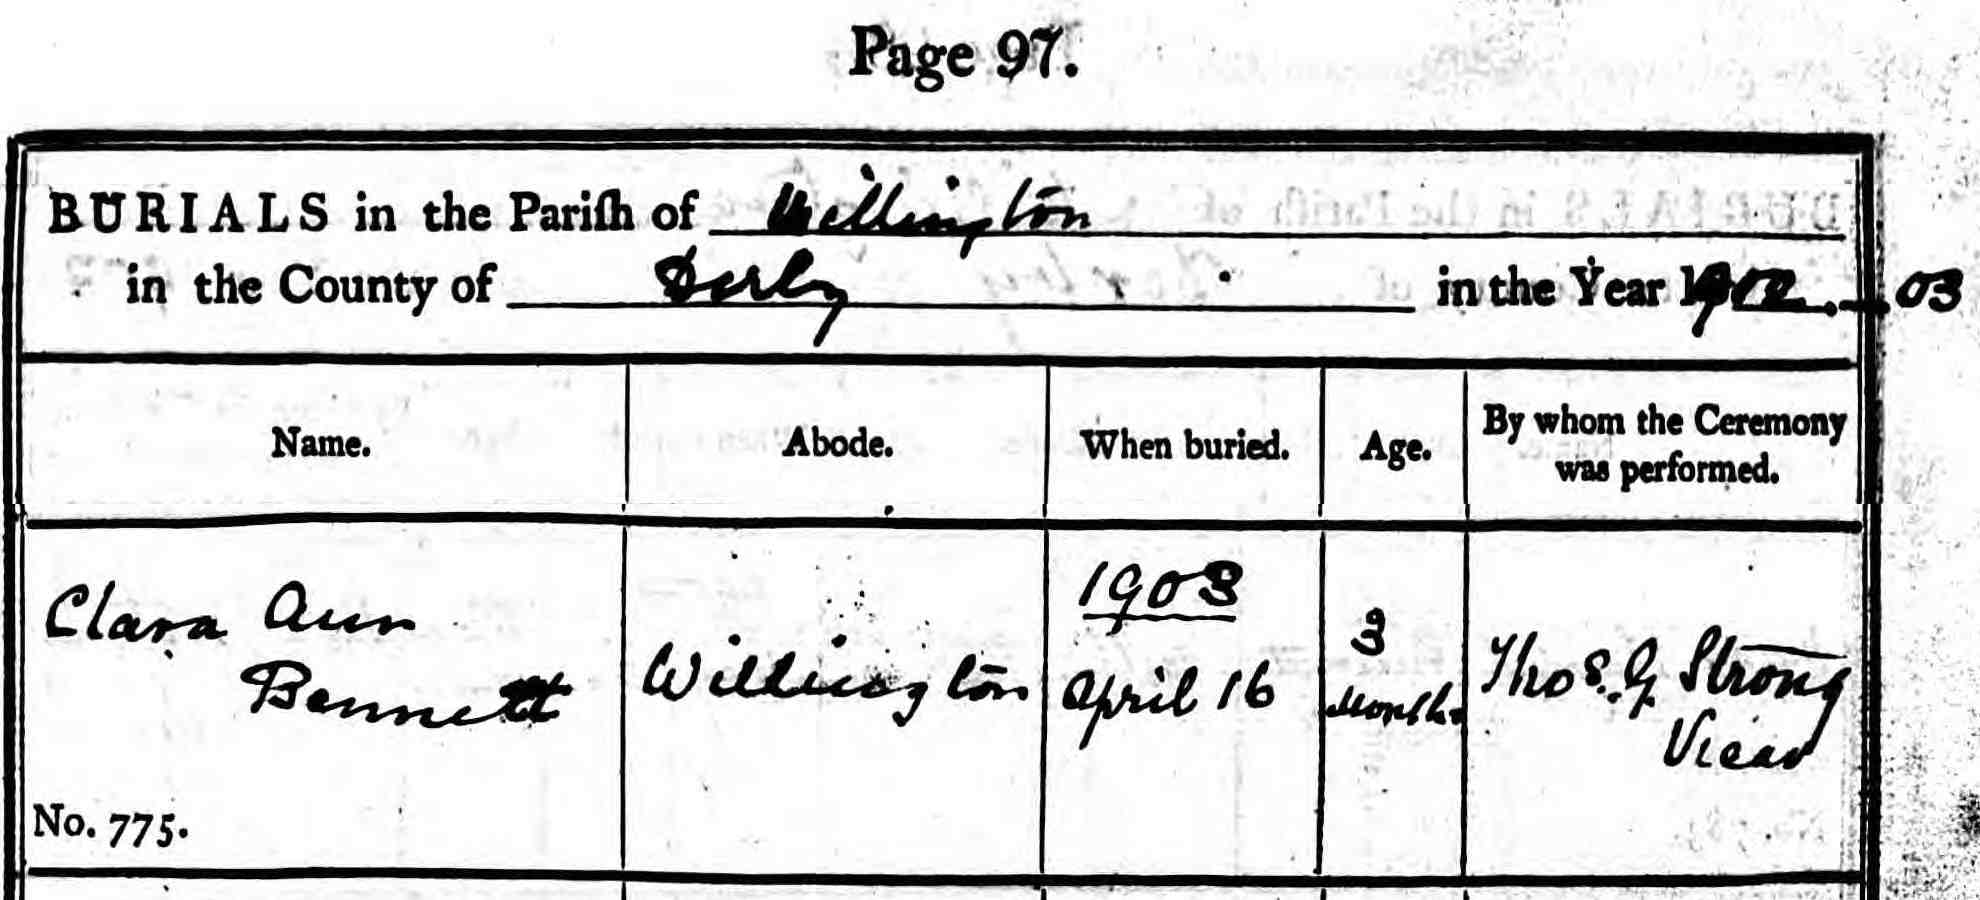 Page 97.
BURIALS in the Pariſh of Willington
in the County of Derby in the Year 1902.—03
Name. Abode. When buried. Age. By whom the Ceremony was performed.
Clara Ann Bennett
Willington
1903
April 16
3
Months
Thos. G Strong
Vicar
No. 775.